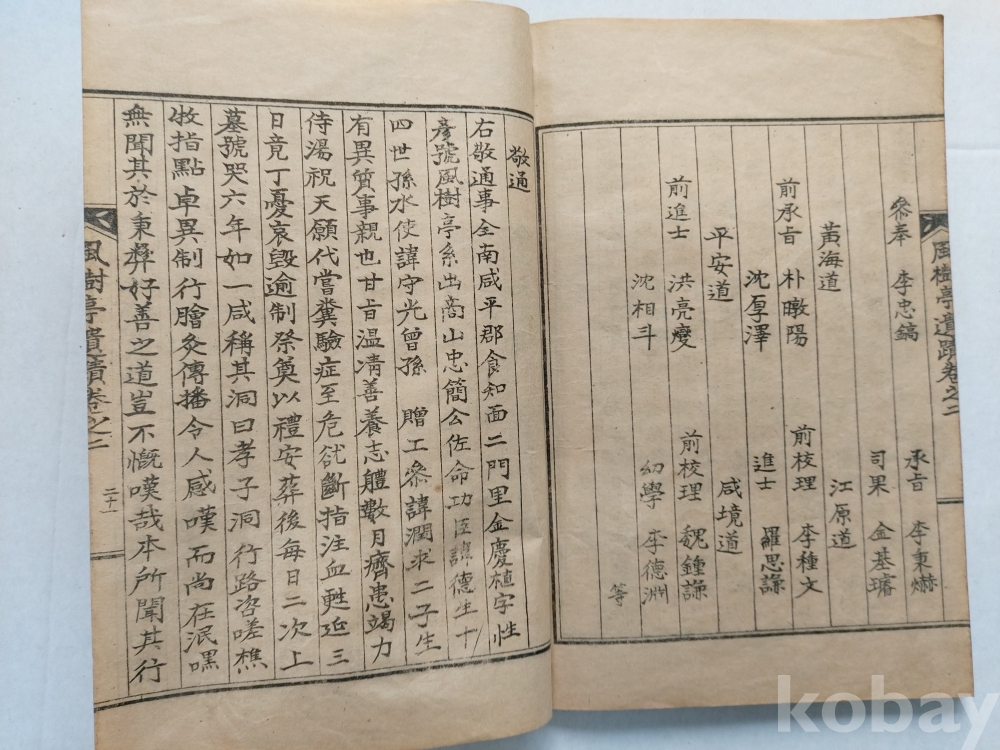 風樹亭遺蹟卷之二
承旨 李秉爀
參奉 李忠鎬
司果 金基璿
江原道
黃海道
前校理 李種文
前承旨 朴暾陽
進士 羅思謙
沈厚澤
咸境道
平安道
前校理 魏鍾謙
前進士 洪亮燮
幼學 李德淵
沈相斗
等
敬通
右敬通事全南咸平郡食知面二門里金慶植字性
彦號風樹亭系出商山忠簡公佐命功臣諱德生十
四世孫水使諱守光曾孫 贈工參諱潤求二子生
有異質事親也甘旨溫凊善養志體數月癠患竭力
侍湯祝天願代嘗糞驗症至危欲斷指注血甦延三
日竟丁憂哀毁逾制祭奠以禮安葬後每日二次上
墓號哭六年如一咸稱其洞曰孝子洞行路咨嗟樵
牧指點卓異制行膾炙傳播令人感嘆而尚在泯嘿
無聞其於秉彛好善之道豈不慨嘆哉本所聞其行
風樹亭遺蹟卷之二
二十一
kobay